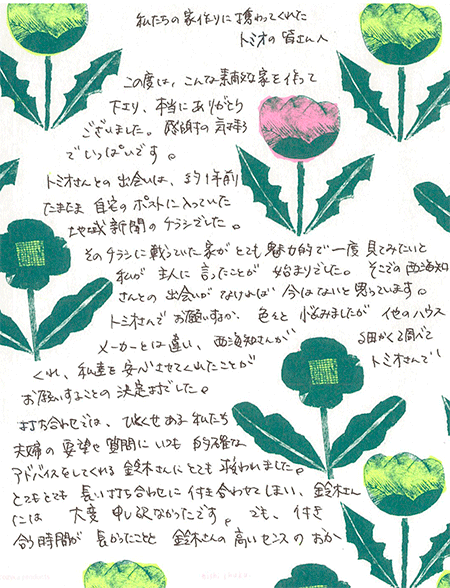 私たちの家作りに携わってくれた
トミオの皆さんへ
この度は、こんな素敵な家を作って
下さり、本当にありがとう
ございました。感謝の気持ち
でいっぱいです。
トミオさんとの出会いは、約1年前
たまたま自宅のポストに入っていた
地域新聞のチラシでした。
そのチラシに載っていた家がとても魅力的で一度見てみたいと
私が主人に言ったことが始まりでした。そこでの西海知
さんとの出会いがなければ今はないと思っています。
トミオさんでお願いするか、色々と悩みましたが他のハウス
メーカーとは違い、西海知さんが細かく調べて
くれ、私達を安心させてくれたことがトミオさんで!
お願いすることの決定打でした。
打ち合わせでは、ひとくせある私たち
夫婦の要望や質問にいつも的確な
アドバイスをしてくれる鈴木さんにとても救われました。
とてもとても長い打ち合わせに付き合わせてしまい、鈴木さん
には大変申し訳なかったです。でも、付き
合う時間が長かったことと鈴木さんの高いセンスのおか